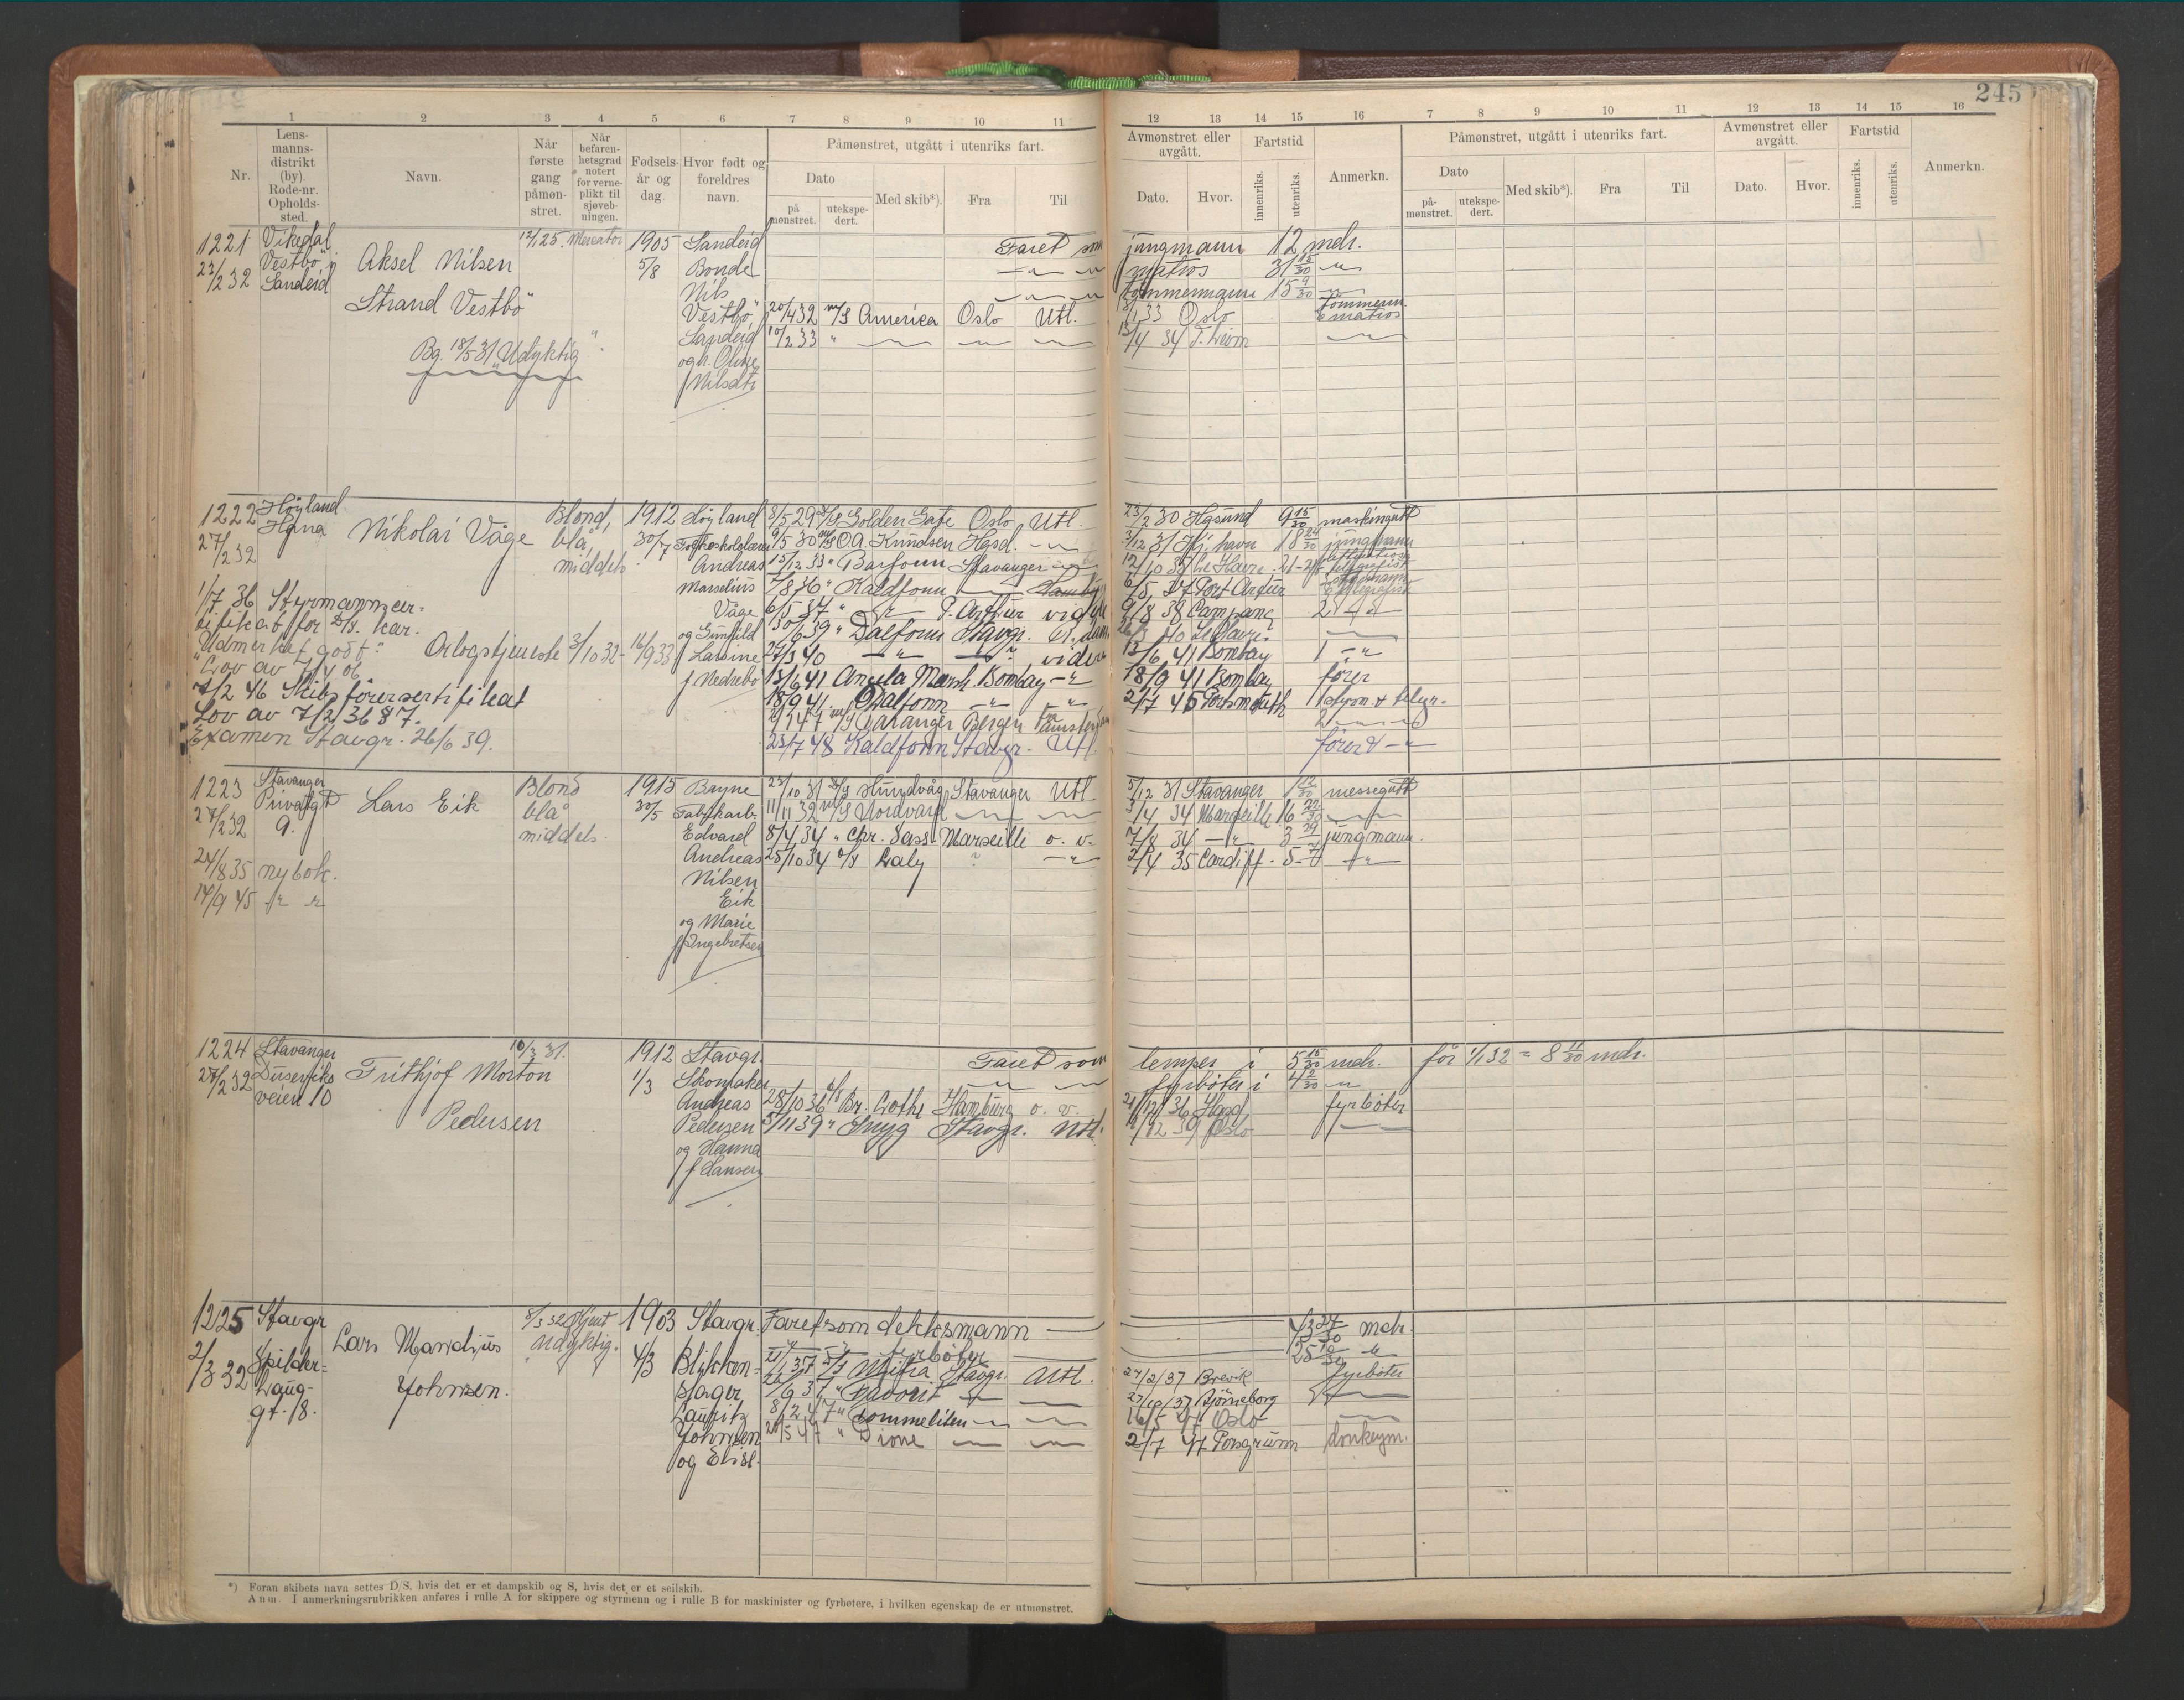 245
1 2 3 4 5 6 7 8 9 10 11 12 13 14 15 16 7 8 9 10 11 12 13 14 15 16
Nr.
Lens-
manns-
distrikt
(by).
Rode-nr.
Opholds-
sted.
Navn.
Når
første
gang
påmøn-
stret.
Når
befaren-
hetsgrad
notert
for verne-
plikt til
sjøveb-
ningen.
Fødsels-
år og
dag
Hvor født og
foreldres
navn.
Påmønstret, utgått i utenriks fart.
Dato
på
mønstret.
utekspe-
dert.
Med skib*).
Fra
Til
Avmønstret eller
avgått.
Dato.
Hvor.
Fartstid
innenriks.
utenriks.
Anmerkn.
Påmønstret, utgått i utenriks fart.
Dato
på-
mønstret.
utekspe-
dert.
Med skib*).
Fra
Til
Avmønstret eller
avgått.
Dato.
Hvor.
Fartstid
innenriks.
utenriks.
Anmerkn.
1221 Vikedal 12/1 25. Mercator 1905 Sandeid Faret som jungmann 12 mdr.
23/2 32 Vestbö Aksel Nilsen 5/8 Bonde matros 31 15/30
Sandeid Nils tømmermann 15 9/30
Strand Vestbö Vestbö 20/4 32 m/S America Oslo Utl. /1 33 Oslo tömmerm.
matros
Sandeid 10/2 33 " 13/4 34 T.heim
Bg. 18/5-31 Udyktig og h. Oline
f Nilsdtr
1222 Höyland Blond, 1912 Höyland 3/5 29 Golden Gate Oslo Utl. 23/2 30 Hgsund 9 15/30 maskingutt
Hana Nikolai Våge blå 30/7 9/5 30 m/S O.A. Knudsen Hgsd. 3/12 31 Kj. havn 18 24/30 jungmann
27/2 32 middels Andreas 15/12 33 " Barfonn Stavanger Le Havre
Marselius 7/8 36 " Kaldfonn 6/5 37 Port Artur
1/7 36 Styrmannscer-
tifikat for
Våge 6/5 37 " P. Artur videre 9/8 38 Campana
"Udmerket godt" Orlogstjeneste 3/10 32 - 16/9 33 og Gunhild 30/6 39 " Dalfonn Stavgr. Le Havre
Lov av Larsine 27/3 40 videre 13/6 41 Bombay
7/2 46 Skibsförersertifikat f Nedrebö 13/6 41 Angela Mærsk Bombay 18/9 41 Bombay förer
Lov av 7/2 36 § 7. 18/9 41. Dalfonn 2/7 45 Portsmouth
Examen Stavgr. 26/6 39. Varanger Bergen
23/7 48 Kaldfonn Stavgr. Utl.
1223 Stavanger Blond 1915 Bryne 23/10 31 Hundvåg Stavanger Utl 5/12 31 Stavanger 1 12/30 messegutt
27/2 32 Privatgt Lars Eik blå 30/5 Fabrikarb. 11/11 32 m/S Nordvard 3/4 34 Marseille 16 22/30
9. middels. Edvard 8/4 34 " Chr. Sass Marseille o. v. 7/8 34 3 29/30 jungmann.
24/8 35 ny bok. Andreas 25/10 34 Laly ? 2/4 35 Cardiff
14/9 45 Nilsen
Eik
og Marie
f Ingebretsen
1224 Stavanger 10/3 31. 1912 Stavgr. Faret som lemper i 5 15/30 mdr. för 1/1 32 = 8 11/30 mdr.
27/2 32 Duserviks Frithjof Morton 1/3 Skomaker fyrböter i 4 2/30
veien 10 Andreas 28/10 36 Br. Hamburg o. v. 21/12 36 Hgsd. fyrböter
Pedersen Pedersen 5/11 39 " Snyg Stavgr. Utl. /12 39 Oslo
og Hanna
f Hansen
1225 Stavgr 8/3 32 Kjent 1903 Stavgr. Faret som dekksmann 43 27/30 mdr.
2/3 32 Spilder- Lars Mandius udyktig. 4/3 Blikken- fyrböter 25
haug- Johnsen. slager Mitra Stavgr. Utl. 27/2/37 Brevik fyrböter
gt. 18. Lauritz Favorit 27/10/37 Björneborg
Johnsen 8/2 47 " Sommerliden 16/5 47 Oslo
og Elise. 20/5 47 " Dione 2/7 47 Porsgrunn donkeym.
*) Foran skibets navn settes D/S, hvis det er et dampskib og S, hvis det er et seilskib.
Anm. I anmerkningsrubrikken anføres i rulle A for skippere og styrmenn og i rulle B for maskinister og fyrbøtere, i hvilken egenskap de er utmønstret.